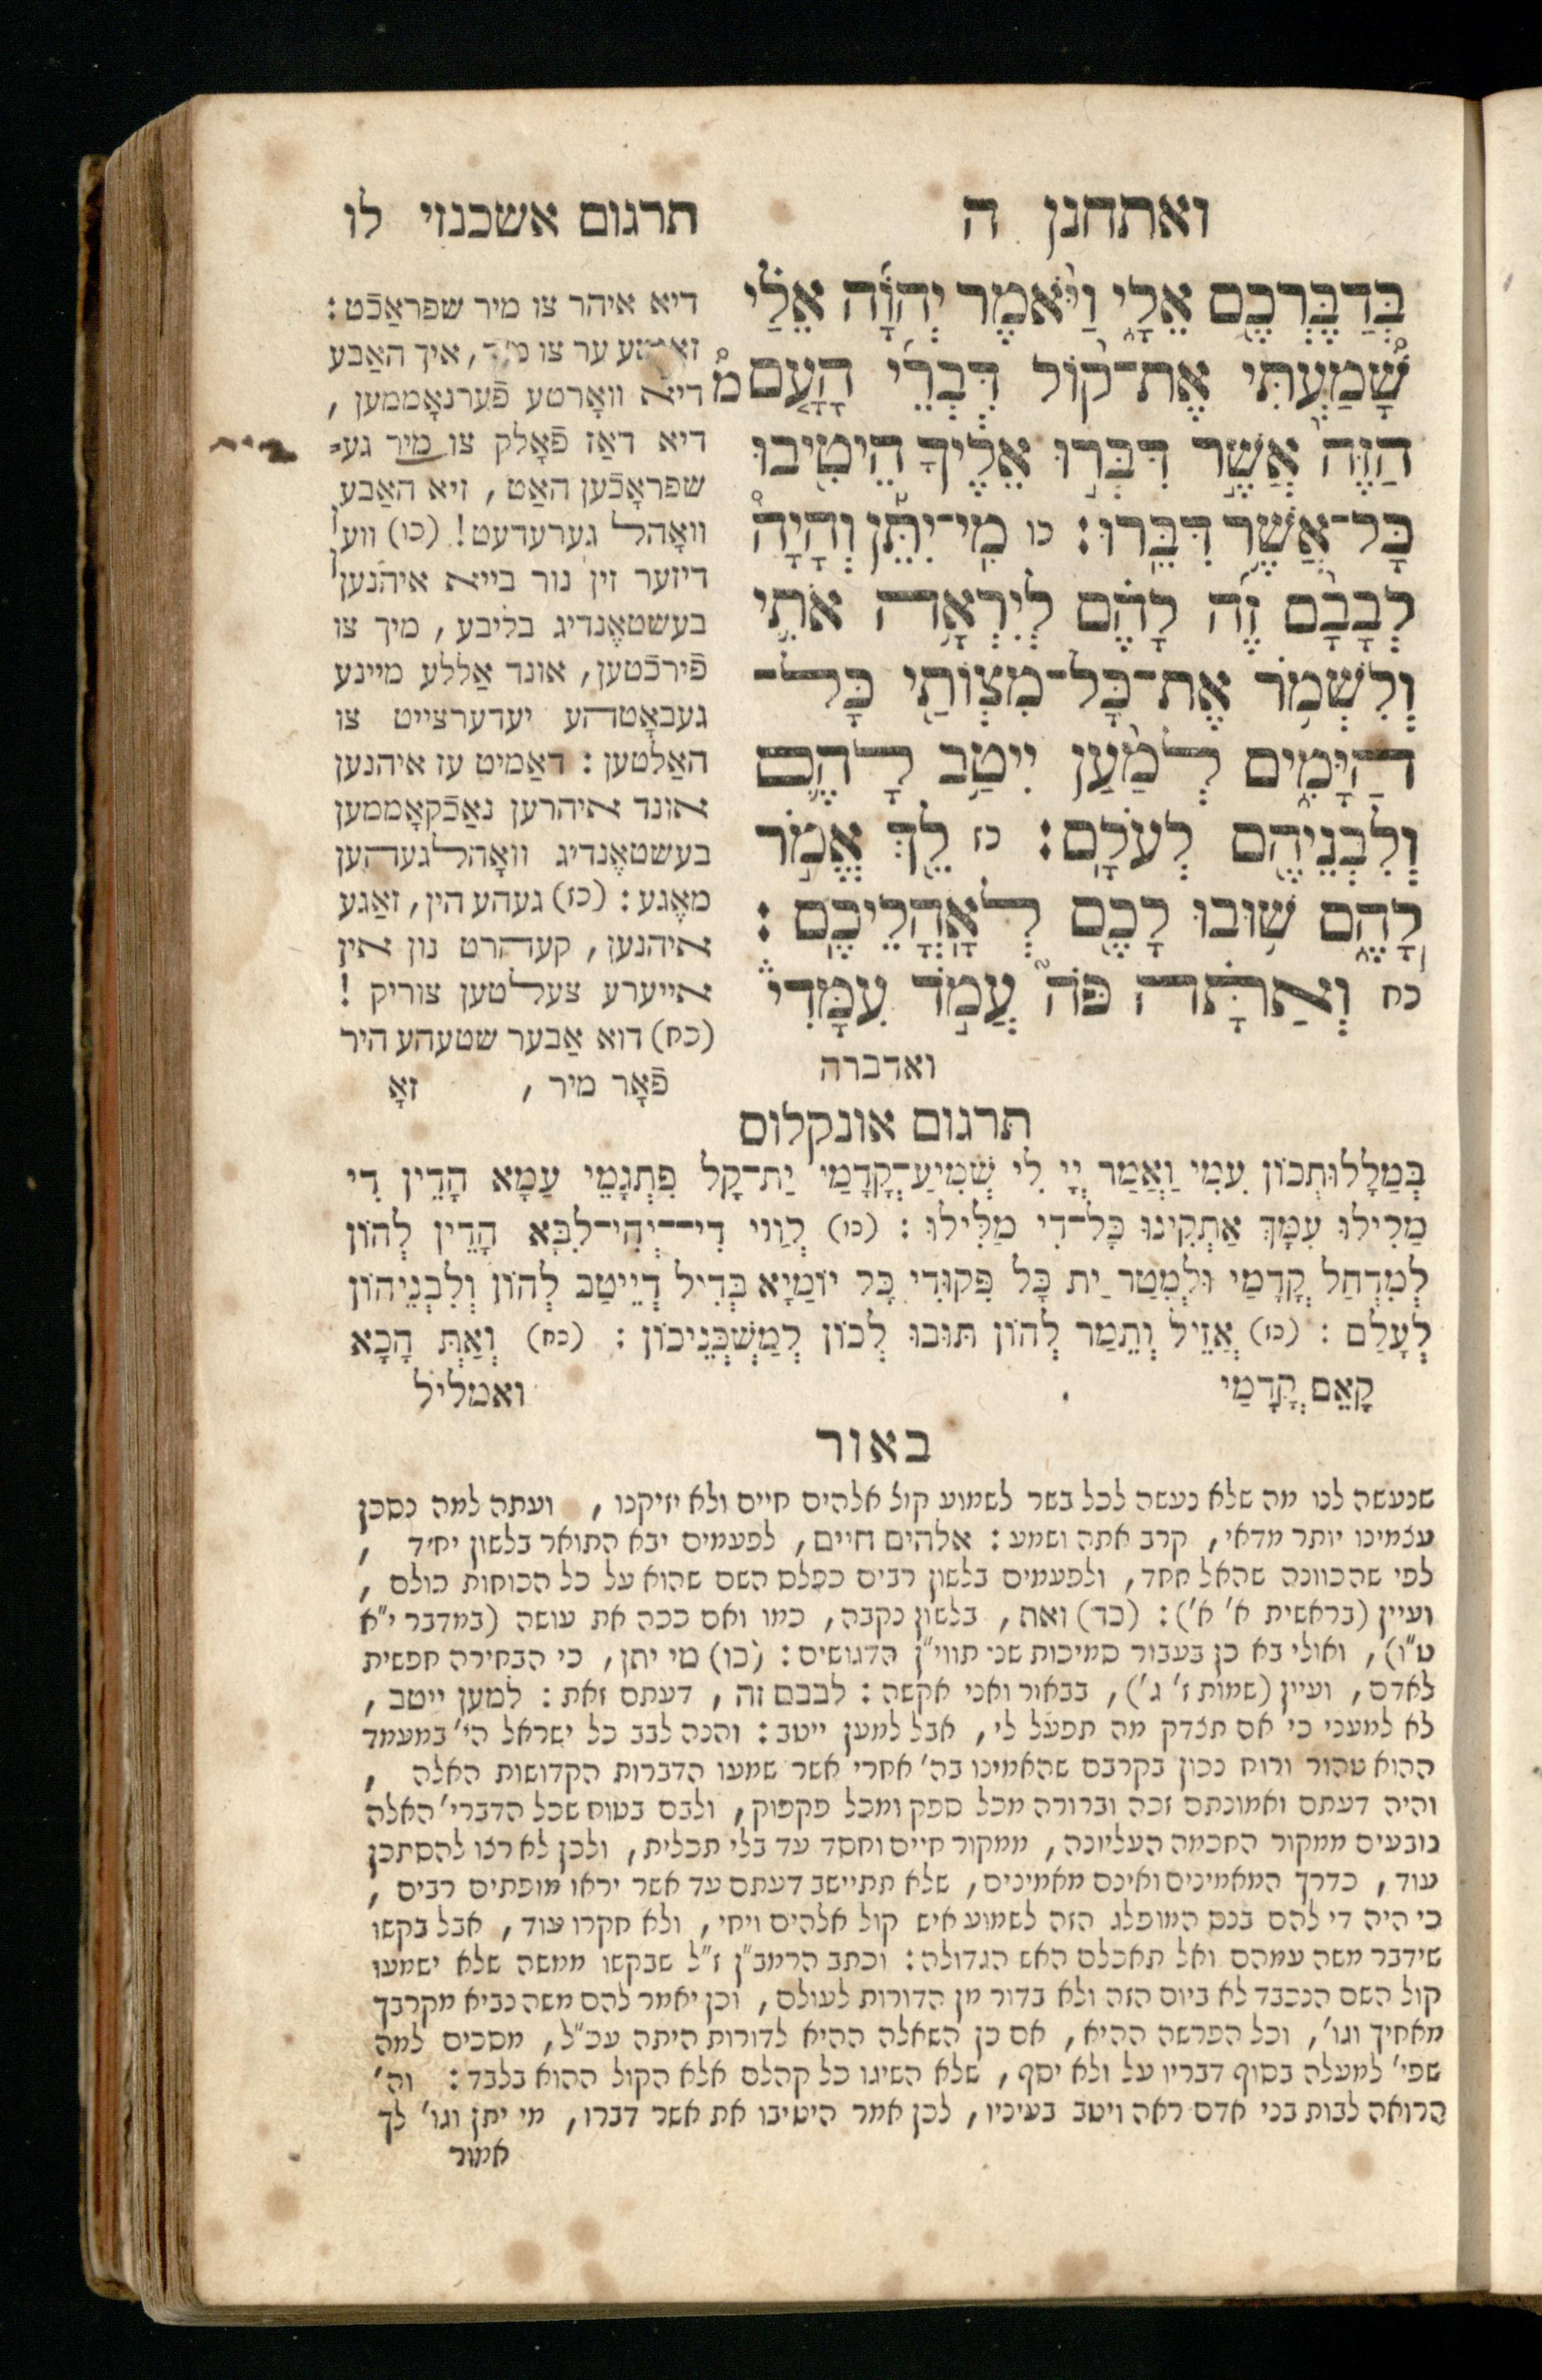 ואתחנן ה
תרגום אשכנזי לו
בְּדַבֶּרְכֶם אֵלָי וַיֹּאמֶר יְהוָֹה אֵלַי
שָׁמַעְתִּי אֶת־קוֹל דִּבְרֵי הָעָם
הַזֶּה אֲשֶׁר דִּבְּרוּ אֵלֶיךָ הֵיטִיבוּ
כָּל־אֲשֶׁר דִּבֵּרוּ: כו מִי־יִתֵּן וְהָיָה
לְבָבָם זֶה לָהֶם לְיִרְאָה אֹתִי
וְלִשְׁמֹר אֶת־כָּל־מִצְוֹתַי כָּל־
הַיָּמִים לְמַעַן יִיטַב לָהֶם
וְלִבְנֵיהֶם לְעֹלָם: כז לֵךְ אֱמֹר
לָהֶם שׁוּבוּ לָכֶם לְאָהֳלֵיכֶם:
כח וְאַתָּה פֹּה עֲמֹד עִמָּדִי
ואדברה
דיא איהר צו מיר שפראַכֿט:
ער צו, איך האַבע
דיא וואָרטע פֿערנאָממען,
דיא דאַז פֿאָלק צו מיר גע=
שפראָכֿען האַט, זיא האַבע
וואָהל גערעדעט! (כו) ווע
דיזער זין נור בייא איהנען
בעשטאֶנדיג בליבע, מיך צו
פֿירכֿטען, אונד אַללע מיינע
געבאָטהע יעדערצייט צו
האַלטען: דאַמיט עז איהנען
אונד איהרען נאַכֿקאָממען
בעשטאֶנדיג וואָהלגעהען
מאֶגע: (כז) געהע הין, זאַגע
איהנען, קעהרט נון אין
אייערע צעלטען צוריק!
(כח) דוא אַבער שטעהע היר
פֿאָר מיר, זאָ
תרגום אונקלוס
בְּמַלָלוּתְכוֹן עִמִי וַאֲמַר יְיָ לִי שְׁמִיעַ־קֳדָמַי יַת־קָל פִּתְגָמֵי עַמָא הָדֵין דִי
מַלִילוּ עִמָּךְ אַתְקִינוּ כָּל־דִי מַלִּילוּ: (כו) לְוַי דִי־יְהֵי־לִבָּא הָדֵין לְהוֹן
לְמִדְחַל קֳדָמַי וּלְמִטַר יַת כָּל פִּקוּדַי כָּל יוֹמַיָא בְּדִיל דְיֵיטַב לְהוֹן וְלִבְנֵיהוֹן
לְעָלַם: (כז) אֲזֵיל וְתֵמַר לְהוֹן תּוּבוּ לְכוֹן לְמַשְׁכְּנֵיכוֹן: (כח) וְאַתְּ הָכָא
קָאֵם קֳדָמַי ואמליל
באור
שנעשה לנו מה שלא נעשה לכל בשר לשמוע קול אלהים חיים ולא יזיקנו, ועתה למה נסכן
עצמינו יותר מדאי, קרב אתה ושמע: אלהים חיים, לפעמים יבא התואר בלשון יחיד,
לפי שהכוונה שהאל אחד, ולפעמים בלשון רבים כפלס השם שהוא על כל הכוחות כולם,
ועיין (בראשית א' א'): (כד) ואת, בלשון נקבה, כמו ואם ככה את עושה (במדבר י"א
ט"ו), ואולי בא כן בעבור סמיכות שני תווי"ן הדגושים: (כו) מי יתן, כי הבחירה חפשית
לאדם, ועיין (שמות ז' ג'), בבאור ואני אקשה: לבבם זה, דעתם זאת: למען ייטב,
לא למעני כי אם תצדק מה תפעל לי, אבל למען ייטב: והנה לבב כל ישראל הי' במעמד
ההוא טהור ורוח נכון בקרבם שהאמינו בה' אחרי אשר שמעו הדברות הקדושות האלה,
והיה דעתם ואמונתם זכה וברורה מכל ספק ומכל פקפוק, ולבם בטוח שכל הדברי' האלה
נובעים ממקור החכמה העליונה, ממקור חיים וחסד עד בלי תכלית, ולכן לא רצו להסתכן
עוד, כדרך המאמינים ואינם מאמינים, שלא תתיישב דעתם עד אשר יראו מופתים רבים,
כי היה די להם בנס המופלג הזה לשמוע איש קול אלהים ויחי, ולא חקרו עוד, אבל בקשו
שידבר משה עמהם ואל תאכלם האש הגדולה: וכתב הרמב"ן ז"ל שבקשו ממשה שלא ישמעו
קול השם הנכבד לא ביום הזה ולא בדור מן הדורות לעולם, וכן יאמר להם משה נביא מקרבך
מאחיך וגו', וכל הפרשה ההיא, אם כן השאלה ההיא לדורות היתה עכ"ל, מסכים למה
שפי' למעלה בסוף דבריו על ולא יסף, שלא השיגו כל קהלם אלא הקול ההוא בלבד: וה'
הרואה לבות בני אדם ראה ויטב בעיניו, לכן אמר היטיבו את אשר דברו, מי יתן וגו' לך
אמור